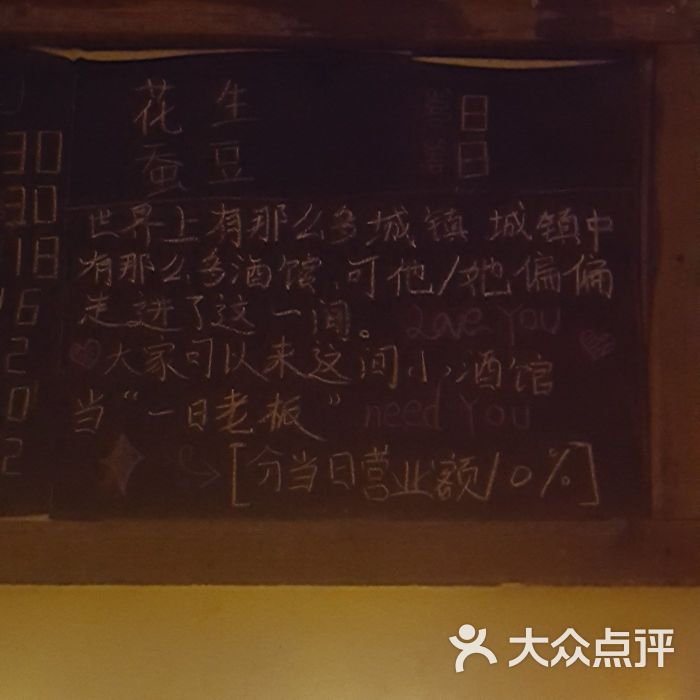 30
30
18
16
2
0
2
花 生
蚕 豆
世界上有那么多城镇 城镇中
有那么多酒馆、可他/她偏偏
走进了这一间。 Love You
大家可以来这间小酒馆
当“一日老板” need You
[分当日营业额10%]
大众点评